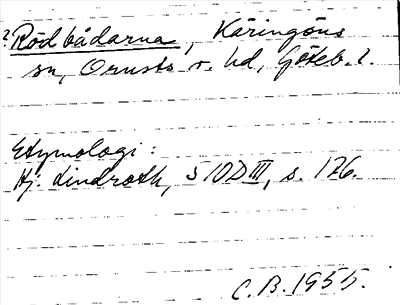 ? Rödbådarna, Käringöns
sn, Orusts v. hd, Göteb. l.
Etymologi:
Hj. Lindroth, SIOD III, s. 176.
C.B. 1955.